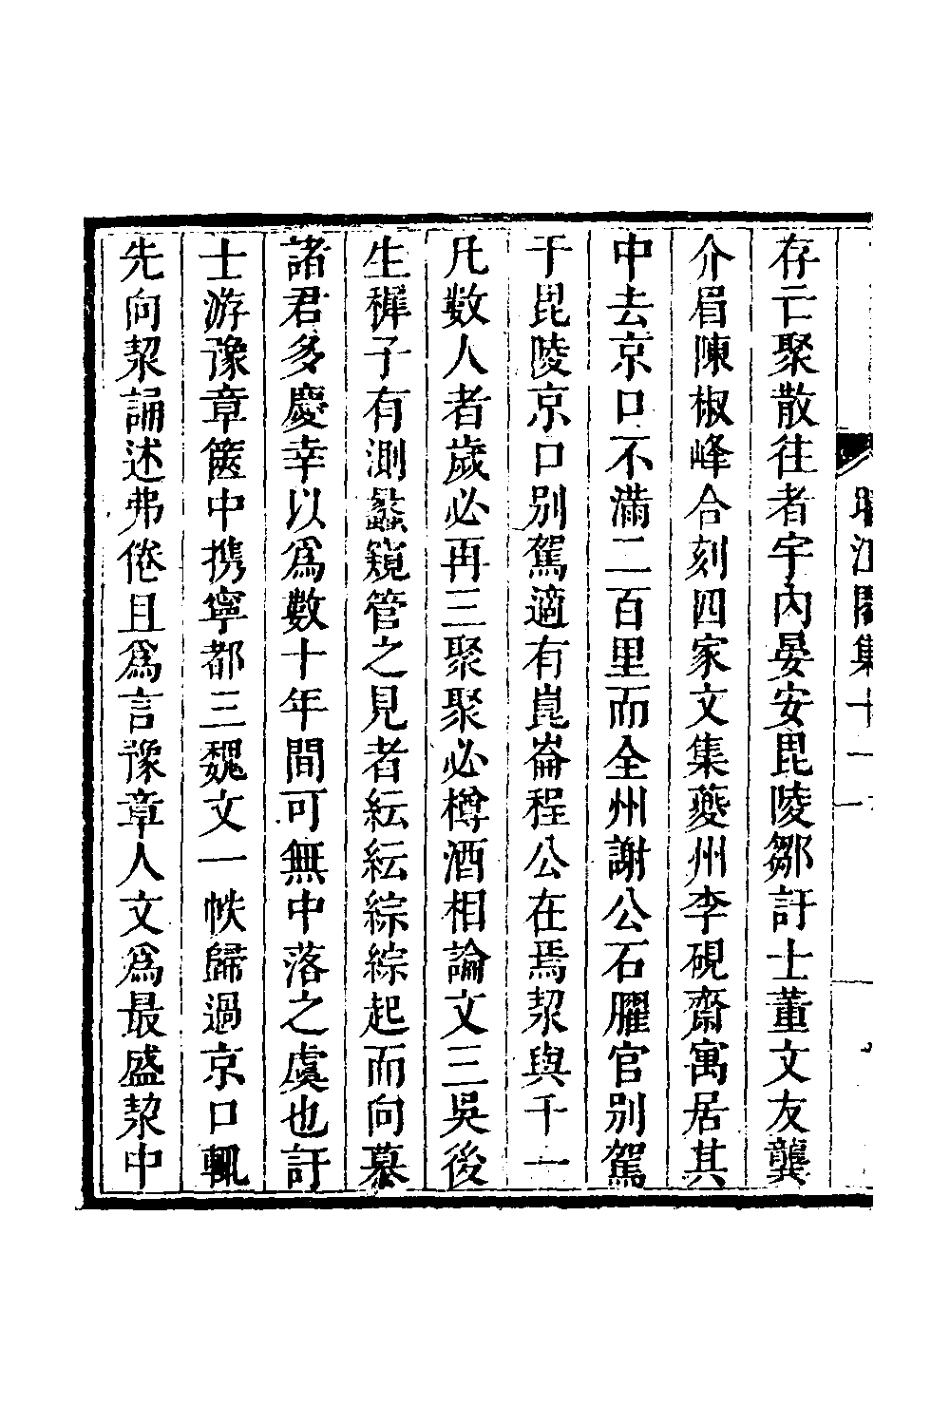 存亡聚散往者宇內晏安毘陵鄒訏士董文友龔
介眉陳椒峰合刻四家文集夔州李硯齋寓居其
中去京口不滿二百里而全州謝公石臞官別駕
于毘陵京口別駕適有崑崙程公在焉洯與千一
凡數人者歲必再三聚聚必樽酒相論文三吳後
生穉子有測蠡窺管之見者紜紜綜綜起而向慕
諸君多慶幸以爲數十年間可無中落之虞也訏
士游豫章篋中携寧都三魏文一帙歸過京口輒
先向洯誦述弗倦且爲言豫章人文爲最盛洯中